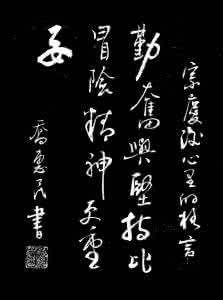 宗慶後心里的格言
勤奮與堅持比
冒險精神更重
要
喬惠民書